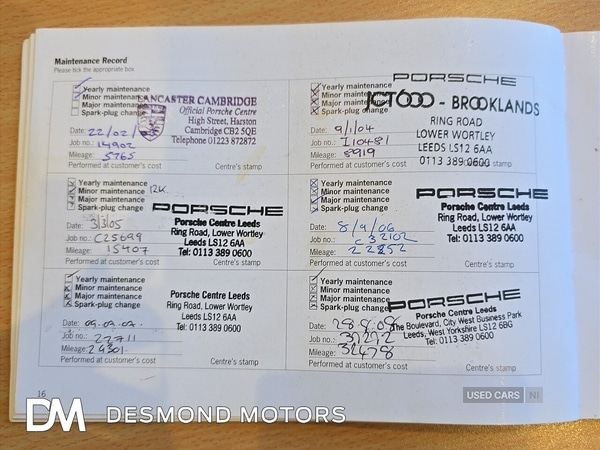 Maintenance Record
Please tick the appropriate box
Yearly maintenance
Minor maintenance
Major maintenance
Spark-plug change
LANCASTER CAMBRIDGE
Official Porsche Centre
High Street, Harston
Cambridge CB2 5QE
Telephone 01223 872872
Date: 22/02/
Job no.: 14902
Mileage: 5765
Performed at customer's cost
Centre's stamp
Yearly maintenance
Minor maintenance
Major maintenance
Spark-plug change
PORSCHE
JCT600 - BROOKLANDS
RING ROAD
LOWER WORTLEY
LEEDS LS12 6AA
0113 389 0600
Date: 9/1/04
Job no.: I10481
Mileage: 8919
Performed at customer's cost
Centre's stamp
Yearly maintenance
Minor maintenance 12K
Major maintenance
Spark-plug change
PORSCHE
Porsche Centre Leeds
Ring Road, Lower Wortley
Leeds LS12 6AA
Tel: 0113 389 0600
Date: 3/3/05
Job no.: C25699
Mileage: 15407
Performed at customer's cost
Centre's stamp
Yearly maintenance
Minor maintenance
Major maintenance
Spark-plug change
PORSCHE
Porsche Centre Leeds
Ring Road, Lower Wortley
Leeds LS12 6AA
Tel: 0113 389 0600
Date: 8/9/06
Job no.: C32102
Mileage: 22252
Performed at customer's cost
Centre's stamp
Yearly maintenance
Minor maintenance
Major maintenance
Spark-plug change
Porsche Centre Leeds
Ring Road, Lower Wortley
Leeds LS12 6AA
Tel: 0113 389 0600
Date: 09.09.07.
Job no.: 22711
Mileage: 29301
Performed at customer's cost
Centre's stamp
Yearly maintenance
Minor maintenance
Major maintenance
Spark-plug change
PORSCHE
Porsche Centre Leeds
The Boulevard, City West Business Park
Leeds, West Yorkshire LS12 6BG
Tel: 0113 389 0600
Date: 28.8.08
Job no.: 37272
Mileage: 32478
Performed at customer's cost
Centre's stamp
16
DM DESMOND MOTORS
USED CARS NI